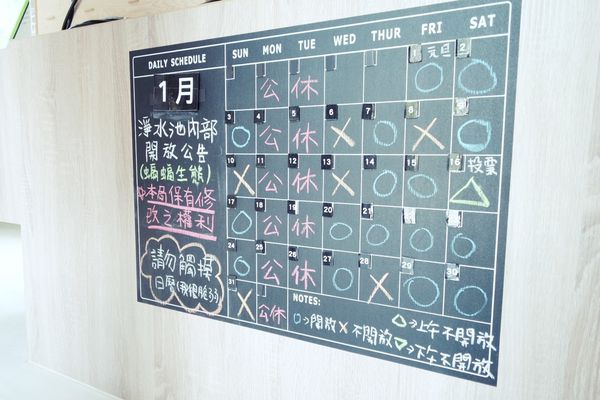 DAILY SCHEDULE
SUN MON TUE WED THUR FRI SAT
1月
淨水池內部
開放公告
(蝙蝠生態)
本局保有修
改之權利
請勿觸摸
日曆(我很脆弱)
公 休 1 元旦 2
3 4 公 5 休 6 7 8
10 11 公 12 休 13 14 15 16 投票
17 18 公 19 休 20 21
24 25 公 26 休 27 28 29 30
31 公休
NOTES:
○→開放 ×不開放 △→上午不開放
▽→下午不開放